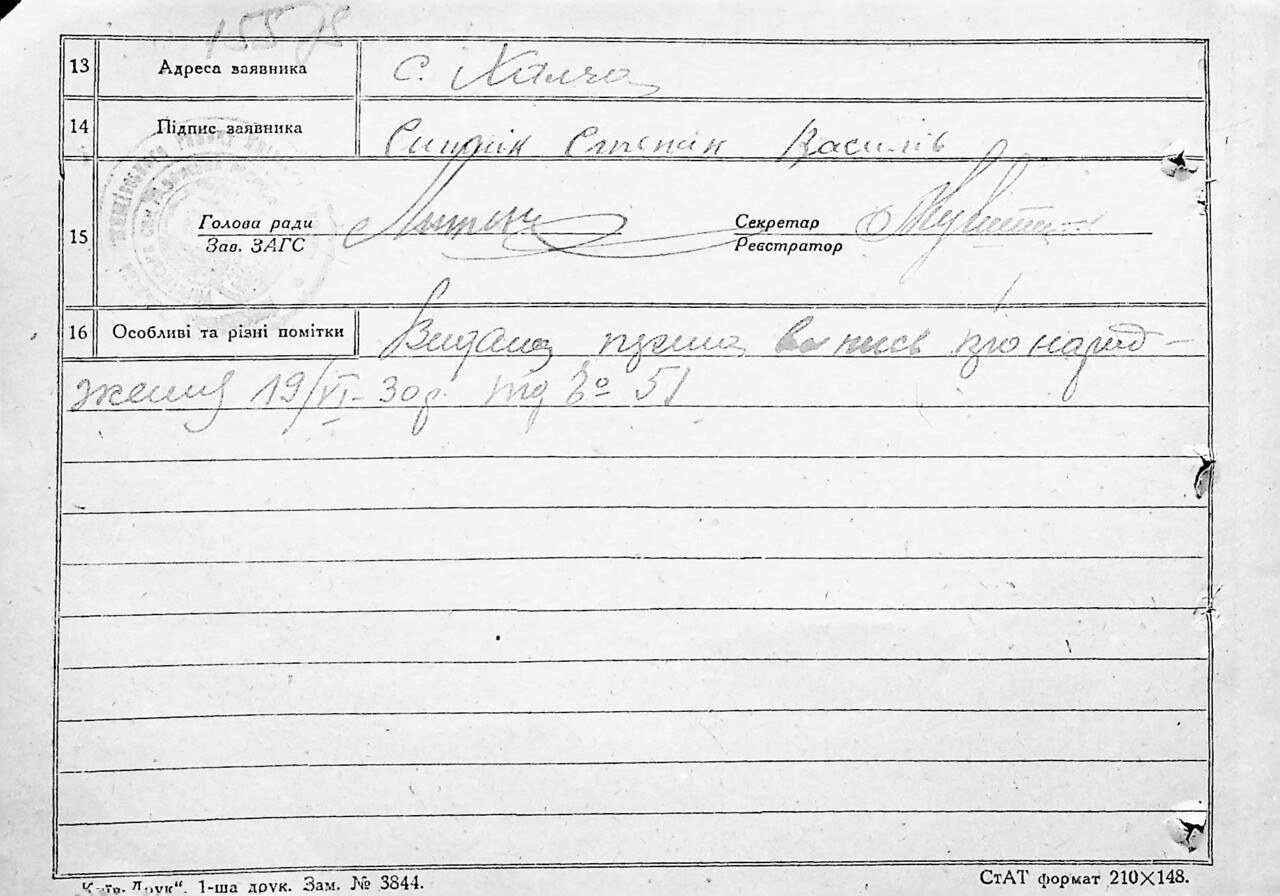 155
13 Адреса заявника с. Халча
14 Підпис заявника Степан Василів
15 Голова ради Секретар
Зав. ЗАГС Реєстратор
16 Особливі та різні помітки Видана про народ-
ження 19/VI-30р. № 51
Київ-Друк“. 1-ша друк. Зам. № 3844.
СтАТ формат 210×148.